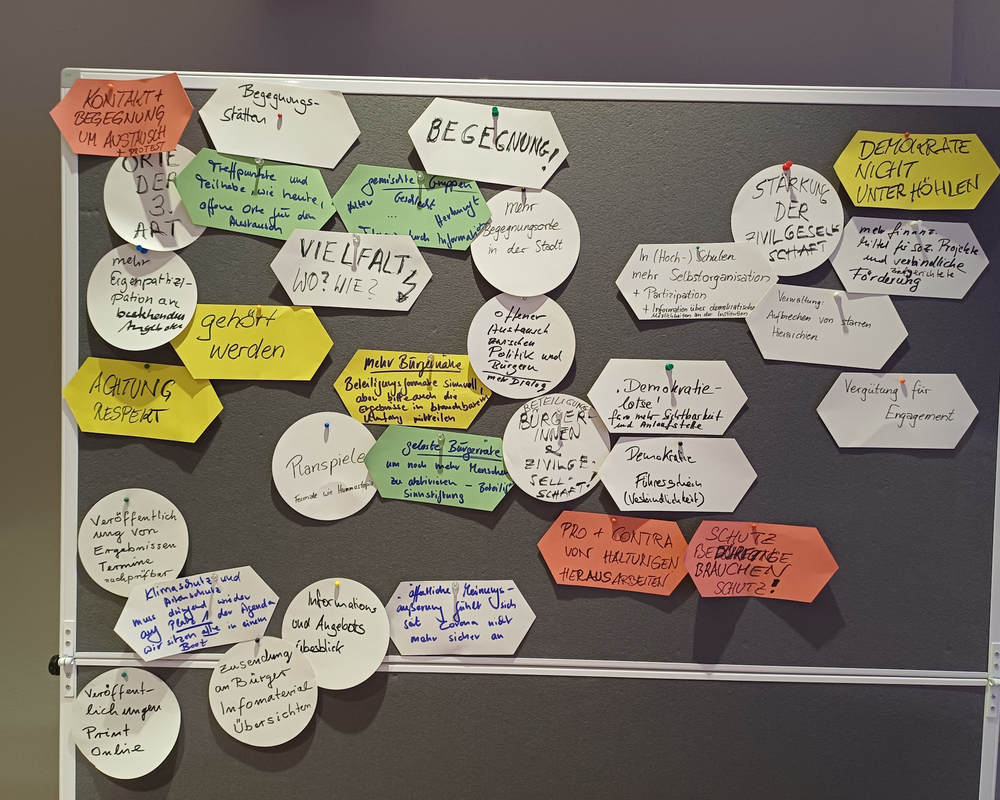 KONTAKT +
BEGEGNUNG
UM AUSTAUSCH
+ PROTEST
Begegnungs-
stätten
BEGEGNUNG!
DEMOKRATE
NICHT
UNTERHÖHLEN
ORTE
DER
3.
ART
Treffpunkte und
Teilhabe, wie heute,
offene Orte für den
Austausch
gemischte Gruppen
Alter Geschlecht
... Herkunft
durch Information
mehr
Begegnungsorte
in der Stadt
STÄRKUNG
DER
ZIVILGESELL
SCHAFT
mehr finanz.
Mittel für soz. Projekte
und verbindliche
zielgerichtete
Förderung
VIELFALT
WO? WIE?
In (Hoch-) Schulen
mehr Selbstorganisation
+ Partizipation
+ Information über demokratische
Möglichkeiten an der Institution
mehr
pation an
bestehenden
Angeboten
Verwaltung:
Aufbrechen von starren
Hierarchien
gehört
werden
offener
Austausch
zwischen
Politik und
Bürgern
mehr Dialog
ACHTUNG
RESPEKT
Mehr Bürgernähe
Beteiligungsformate sinnvoll,
aber bitte auch die
Ergebnisse in brauchbarem
Umfang mitteilen
"Demokratie-
lotse"
für mehr Sichtbarkeit
und Anlaufstelle
Vergütung für
Engagement
BETEILIGUNG
BÜRGER-
INNEN
&
ZIVILGE-
SELL-
SCHAFT!
Planspiele
Formate wie
geloste Bürgerräte
um noch mehr Menschen
zu aktivieren -
Sinnstiftung
Demokratie
Führerschein
(Verbindlichkeit)
Veröffentlich
ung von
Ergebnissen
Termine
nachprüfbar
PRO + CONTRA
VON HALTUNGEN
HERAUSARBEITEN
SCHUTZ
BEDÜRFTIGE
BRAUCHEN
SCHUTZ!
Klimaschutz und
Artenschutz
muss dringend wieder
auf Platz 1 der Agenda
wir sitzen alle in einem
Boot
Informations
und Angebots
überblick
öffentliche Meinungs-
äußerung fühlt sich
seit Corona nicht
mehr sicher an
Zusendung
an Bürger
Infomaterial
Übersichten
Veröffent-
lichungen
Print
Online